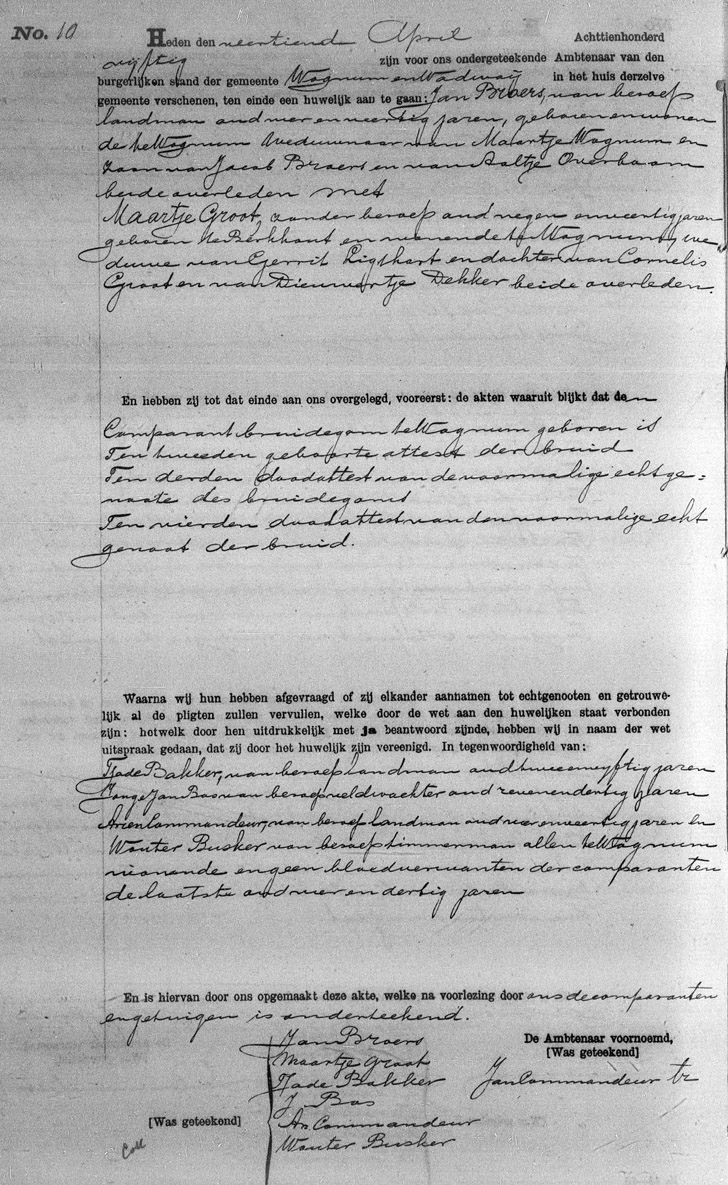 No. 10
Heden den veertiend April Achttienhonderd
vijftig zijn voor ons ondergeteekende Ambtenaar van den
burgerlijken stand der gemeente Wognum en Wadway in het huis derzelve
gemeente verschenen, ten einde een huwelijk aan te gaan: Jan Broers, van beroep
landman oud vier en veertig jaren, geboren en wonen
de te Wognum Weduwnaar van Maartje Wognum en
zoon van Jacob Broers en van Aaltje Overboom
beide overleden met
Maartje Groot, zonder beroep oud negen en veertig jaren
geboren te Berkhout en wonende te Wognum, we
duwe van Gerrit Ligthart en dochter van Cornelis
Groot en van Dieuwertje Dekker beide overleden.
En hebben zij tot dat einde aan ons overgelegd, vooreerst: de akten waaruit blijkt dat de
Comparant bruidegom te Wognum geboren is
Ten tweeden geboorte attest der bruid
Ten derden doodattest van de voormalige echtge=
noote des bruidegoms
Ten vierden doodattest van den voormalige echt
genoot der bruid.
Waarna wij hun hebben afgevraagd of zij elkander aannamen tot echtgenooten en getrouwe-
lijk al de pligten zullen vervullen, welke door de wet aan den huwelijken staat verbonden
zijn: hetwelk door hen uitdrukkelijk met ja beantwoord zijnde, hebben wij in naam der wet
uitspraak gedaan, dat zij door het huwelijk zijn vereenigd. In tegenwoordigheid van:
Tjade Bakker, van beroep landman oud twee en vyftig jaren
Jonge Jan Bos van beroep veldwachter oud zeven en dertig jaren
Arien Commandeur, van beroep landman oud vier en veertig jaren en
Wouter Busker van beroep timmerman allen te Wognum
wonende en geen bloedverwanten der comparanten
de laatste oud vier en dertig jaren
En is hiervan door ons opgemaakt deze akte, welke na voorlezing door ons de comparanten
en getuigen is onderteekend.
Jan Broers De Ambtenaar voornoemd,
Maartje Groot [Was geteekend]
Tjade Bakker Jan Commandeur
J Bos
[Was geteekend] Ar Commandeur
Wouter Busker
Coll